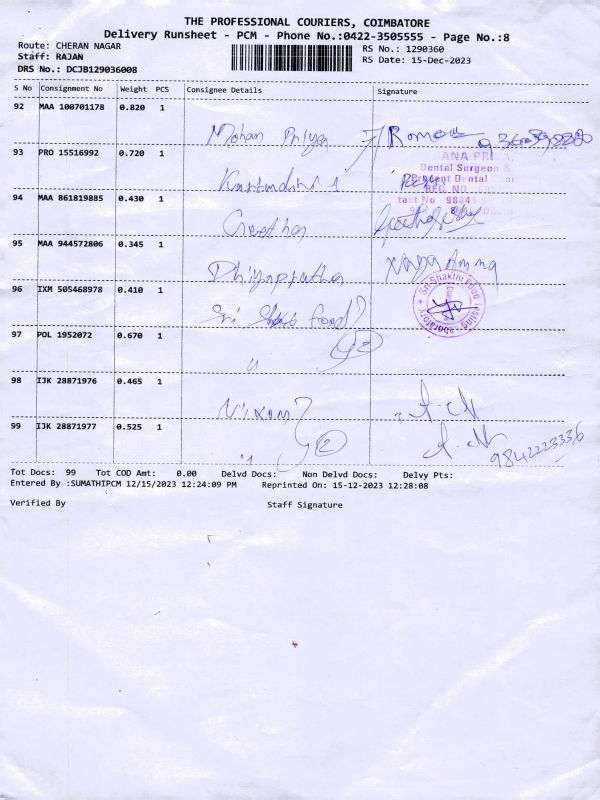 THE PROFESSIONAL COURIERS, COIMBATORE
Delivery Runsheet - PCM - Phone No.:0422-3505555 - Page No.:8
Route: CHERAN NAGAR
RS No.: 1290360
Staff: RAJAN
RS Date: 15-Dec-2023
DRS No.: DCJB129036008
S No Consignment No Weight PCS Consignee Details Signature
92 MAA 100701178 0.820 1
Mohan Priya
93 PRO 15516992 0.720 1
Dental Surgeon &
REG. NO.
94 MAA 861819885 0.430 1
Geetha
95 MAA 944572806 0.345 1
Naga Amma
96 IXM 505468978 0.410 1
Sri Shakthi Food
Sri Food
97 POL 1952072 0.670 1
2
"
98 IJK 28871976 0.465 1
99 IJK 28871977 0.525 1
2
9842223336
"
Tot Docs: 99 Tot COD Amt: 0.00 Delvd Docs: Non Delvd Docs: Delvy Pts:
Entered By :SUMATHIPCM 12/15/2023 12:24:09 PM Reprinted On: 15-12-2023 12:28:08
Verified By Staff Signature